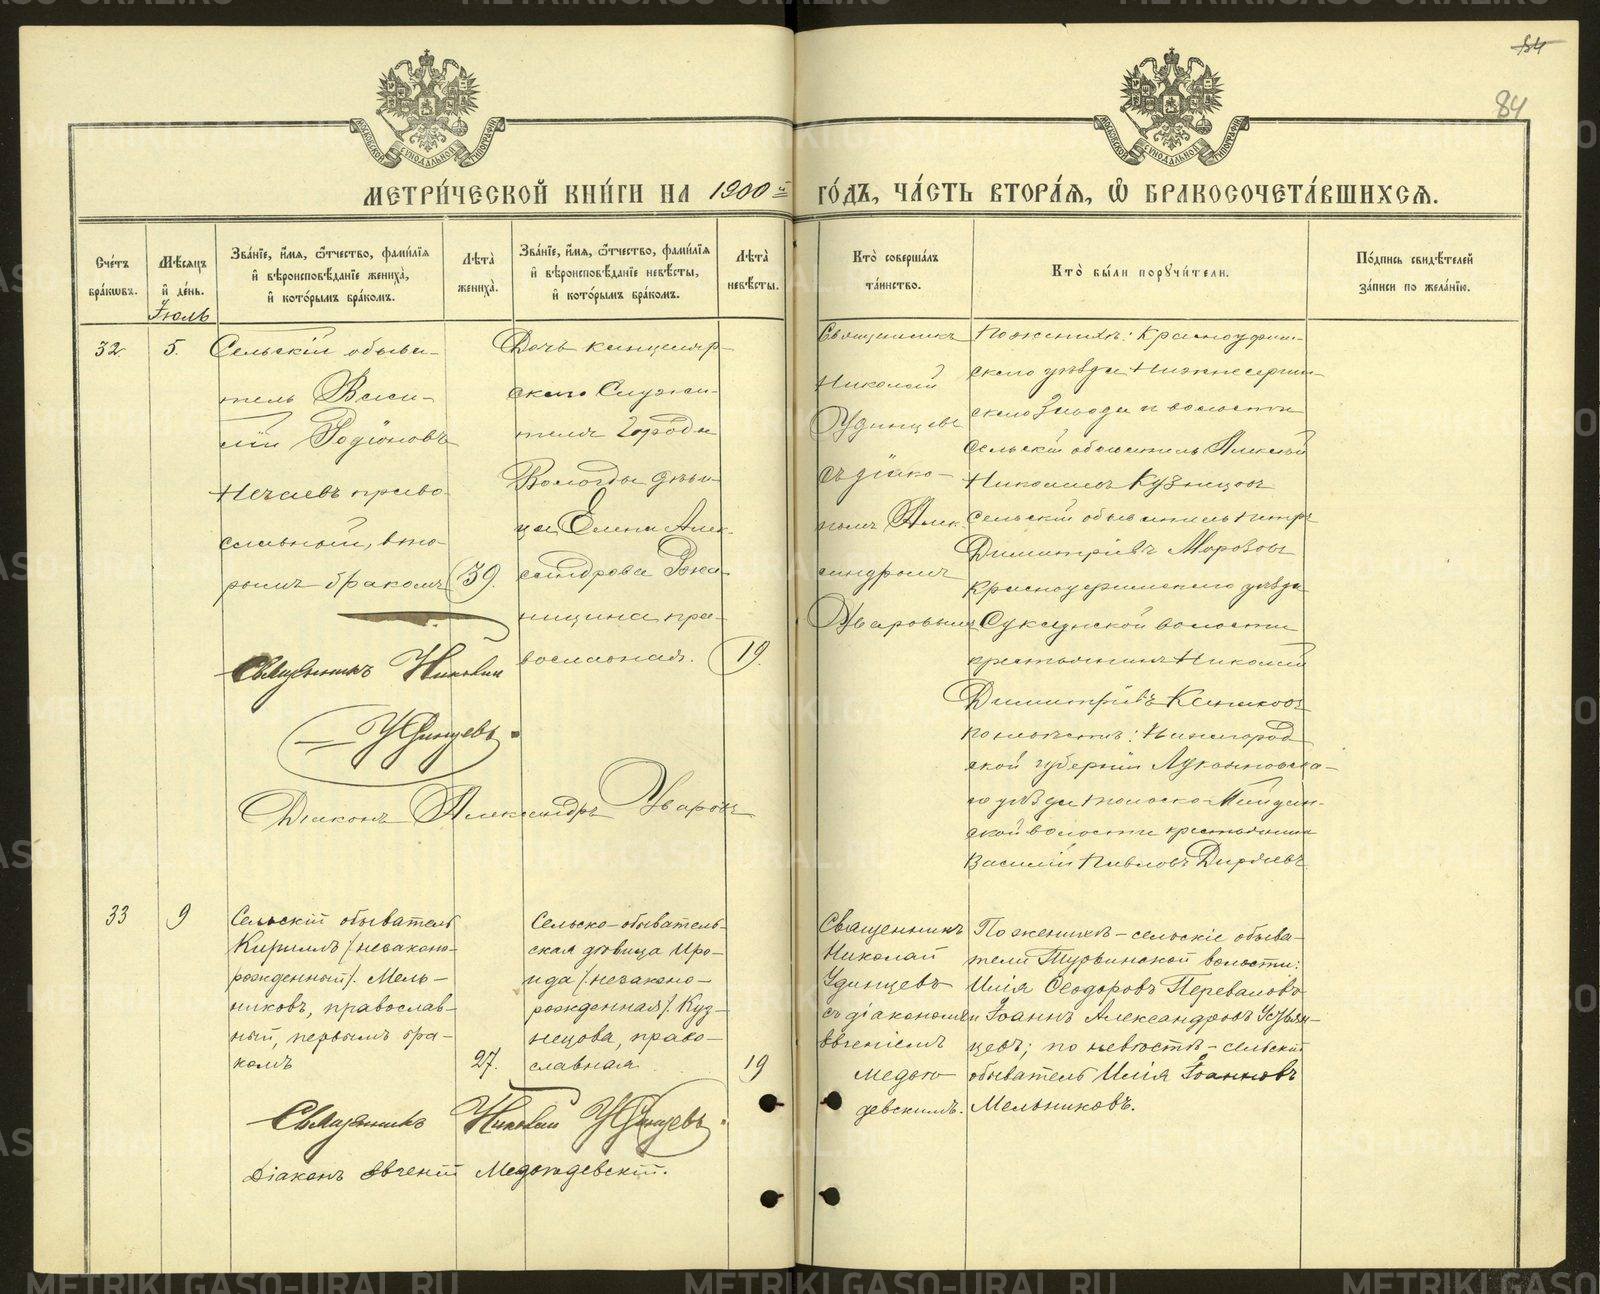 84
84
МЕТРИ́ЧЕСКОЙ КНИ́ГИ НА 1900й ГО́ДЪ, ЧА́СТЬ ВТОРА́Я, Ѽ БРАКОСОЧЕТА́ВШИХСЯ.
Сче́тъ бра́кωвъ.
Мѣ́сяцъ и҆ де́нь.
Зва́нїе, и҆́мя, ѻ҆́тчество, фами́лїя и҆ вѣроисповѣ́данїе жениха̀, и҆ кото́рымъ бра́комъ.
Лѣта̀ жениха̀.
Зва́нїе, и҆́мя, ѻ҆́тчество, фами́лїя и҆ вѣроисповѣ́данїе невѣ́сты, и҆ кото́рымъ бра́комъ.
Лѣта̀ невѣ́сты.
Кто̀ соверша́лъ та́инство.
Кто̀ бы́ли порꙋчи́тели.
По́дпись свидѣ́телей за́писи по жела́нїю.
Іюль
32
5.
Сельскій обыва-
тель Васи-
лій Родіоновъ
Нечаевъ право-
славный, вто-
рымъ бракомъ
39.
Дочь канцеляр-
скаго Служи-
теля города
Вологды дѣви-
ца Елена Алек-
сандрова Рожа-
ницина пра-
вославная.
19.
Священникъ
Николай
Удинцевъ
съ діако-
номъ Алек-
сандромъ
Уваровымъ
По женихѣ: Красноуфим-
скаго уѣзда Нижнесергин-
скаго Завода и волости
сельскій обыватель Алексѣй
Николаевъ Кузнецовъ
сельскій обыватель Петръ
Димитріевъ Морозовъ
Красноуфимскаго уѣзда
Суксунской волости
крестьянинъ Николай
Димитріевъ
по невѣстѣ: Нижегород-
ской губерніи Лукояновска-
го уѣзда
ской волости крестьянинъ
Василій Павловъ
Священникъ Николай
Удинцевъ.
Діаконъ Александръ Уваровъ
33
9
Сельскій обыватель
Кириллъ /незаконо-
рожденный/. Мель-
никовъ, православ-
ный, первымъ бра-
комъ
27.
Сельско-обыватель-
ская дѣвица Иро-
ида /незаконо-
рожденная/. Куз-
нецова, право-
славная.
19
Священникъ
Николай
Удинцевъ
съ діакономъ
Евгеніемъ
Медою-
девскимъ.
По женихѣ - сельскіе обыва-
тели Турьинской волости:
Илія Ѳеодоровъ Переваловъ
и Іоаннъ Александровъ
цевъ; по невѣстѣ - сельскій
обыватель Илія Іоанновъ
Мельниковъ.
Священникъ Николай Удинцевъ.
Діаконъ Евгеній